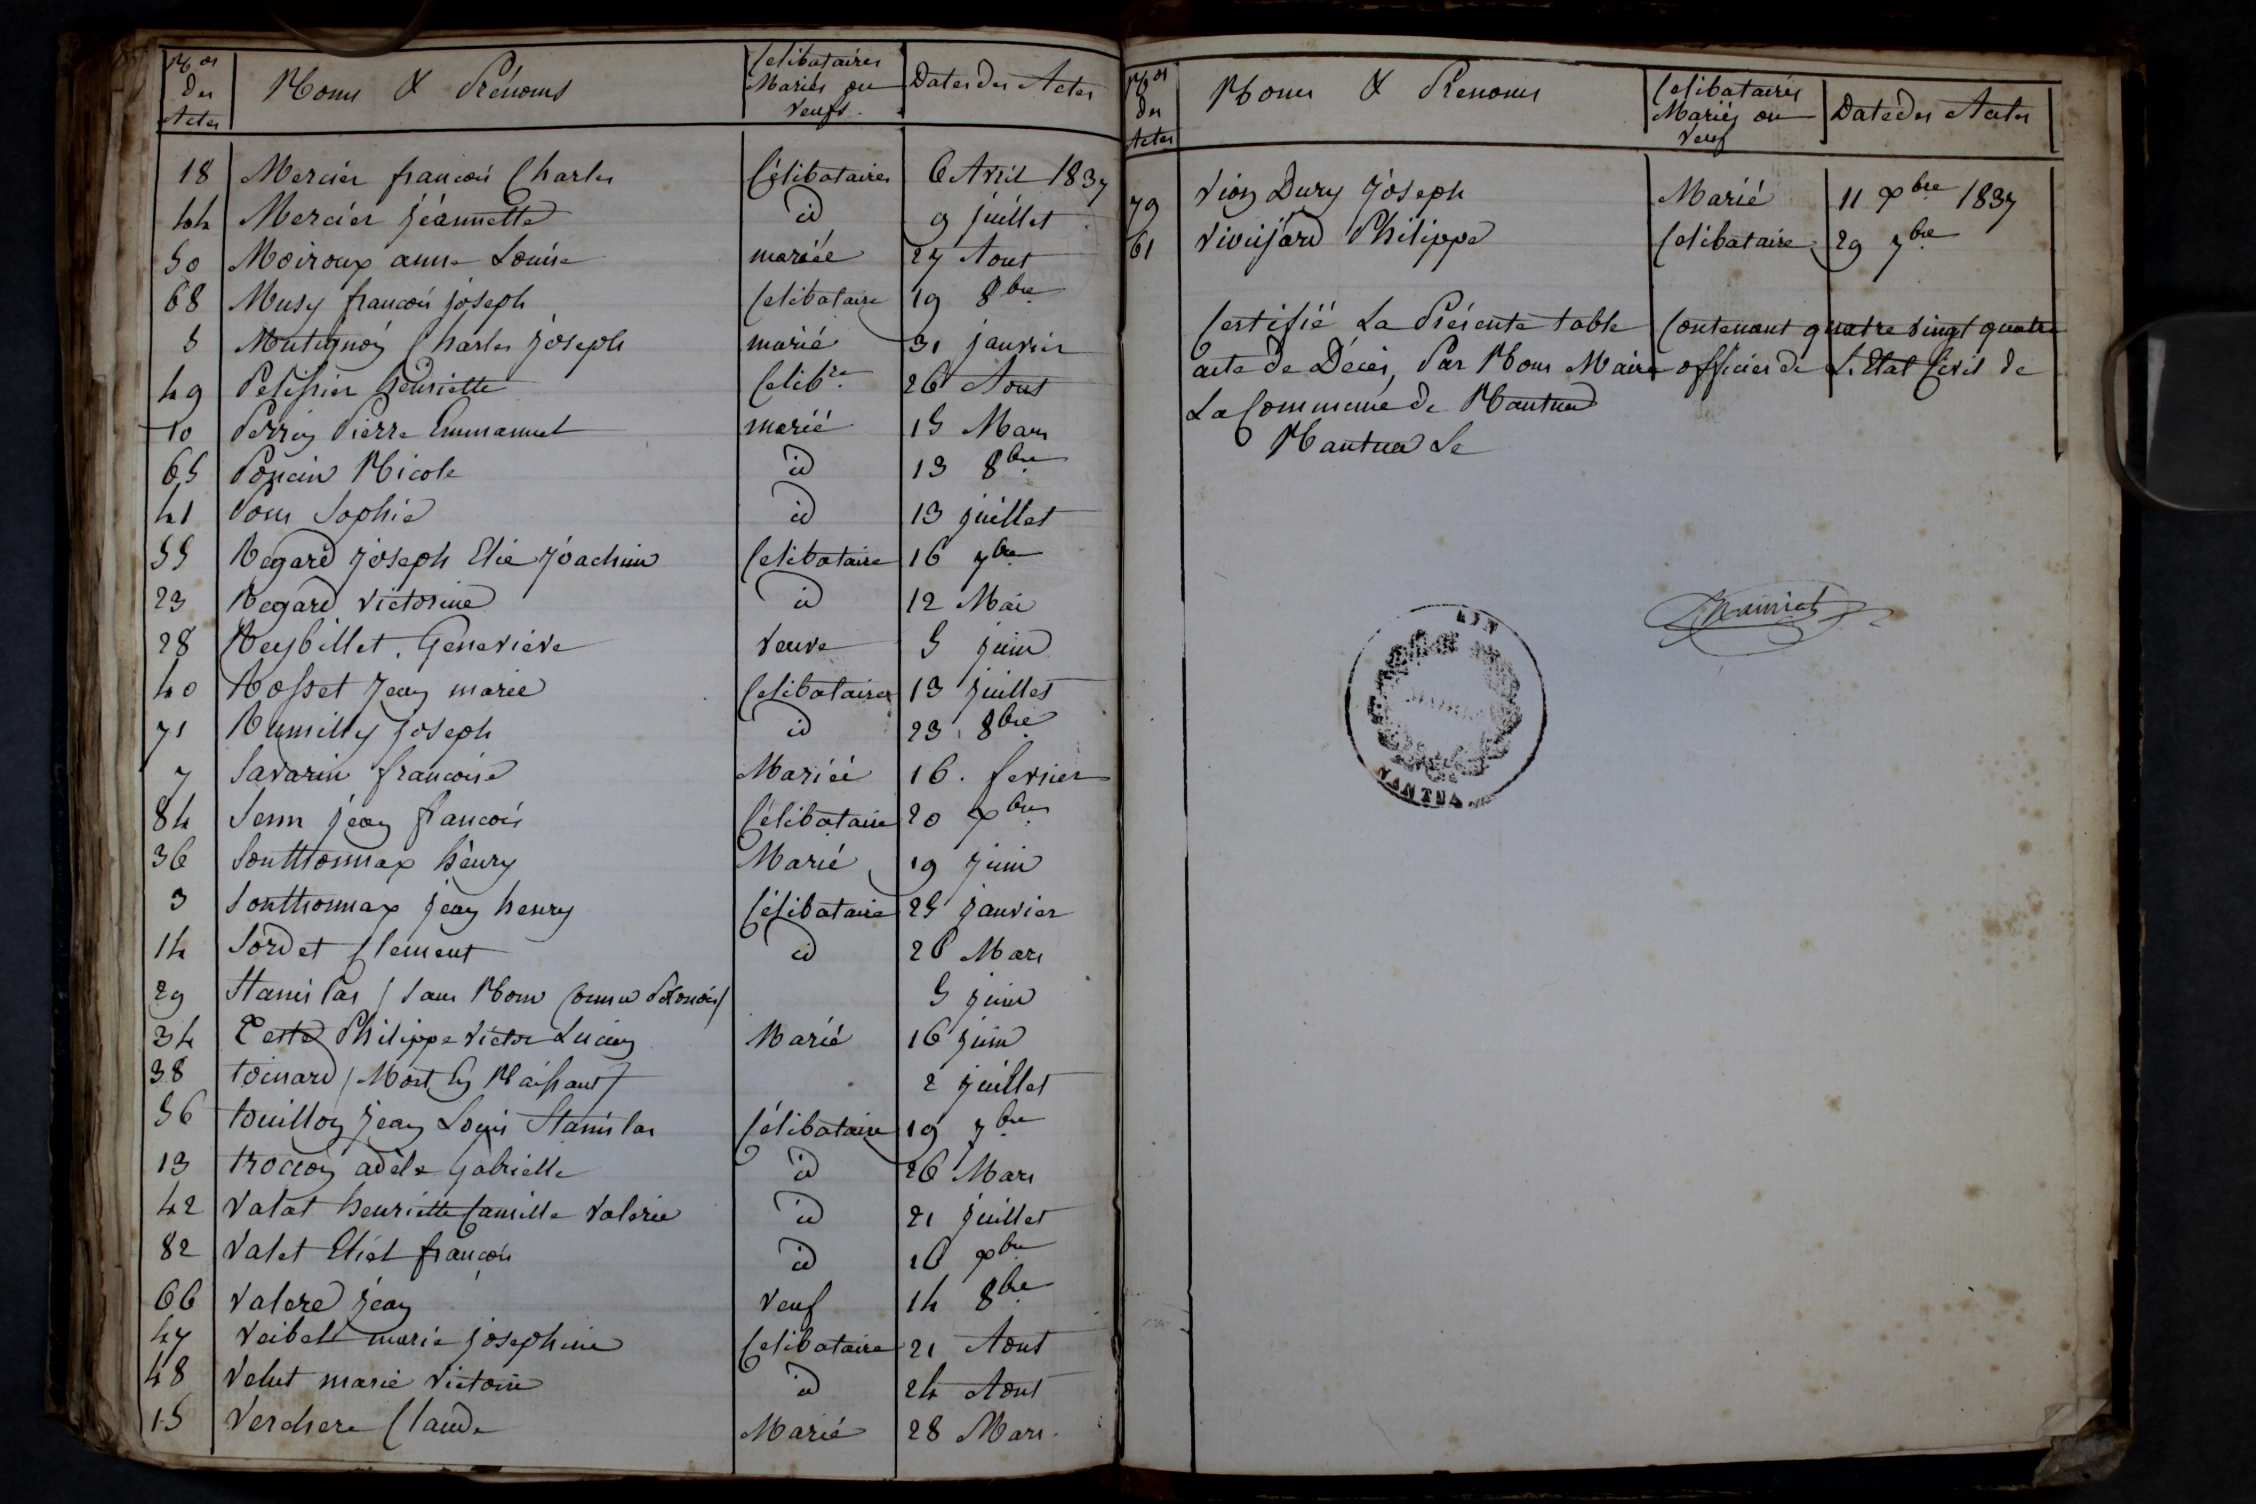 Nos des Actes | Noms & Prénoms | Celibataires Mariés ou Veufs | Dates des Actes
18 Mercier francois Charles Célibataires 6 Avril 1837
44 Mercier jéannette id 9 juillet
50 Moiroux anne Louise mariée 27 Aout
68 Musy francois joseph Celibataire 19 8bre
5 Mutignoy Charles joseph marié 31 janvier
49 Pelissier henriette Celibre 26 Aout
10 Perrin Pierre Emmanuel marié 15 Mars
65 Poncin Nicole id 13 8bre
41 Pons Sophie id 13 juillet
55 Regard joseph Elie joachim Celibataire 16 7bre
23 Regard victorine id 12 Mai
28 Reybillet Geneviéve Veuve 5 juin
40 Rosset jean marie Celibataires 13 juillet
71 Rumilly joseph id 23 8bre
7 Savarin francoise Mariée 16 fevrier
84 Senn jean francois Célibataire 20 Xbre
36 Sonthonnax henry Marié 19 juin
3 Sonthonnax jean henry Célibataire 25 janvier
14 Sordet Clement id 26 Mars
29 Stanislas / Sans Nom Connu 5 juin
34 Teste Philippe Victor Lucien Marié 16 juin
38 toinard / Mort En Naissant / 2 juillet
56 touillon jean Louis Stanislas Célibataire 19 7bre
13 troccon adèle Gabrielle id 26 Mars
42 Valat henriette Camille Valerie id 21 juillet
82 Valet Eliel françois id 16 Xbre
66 Valere jean Veuf 14 8bre
47 Veibel marie josephine Celibataire 21 Aout
48 Velut marie Victoire id 24 Aout
15 Verchere Claude Marié 28 Mars
Nos des Actes | Noms & Prenoms | Celibataires Mariés ou Veuf | Date des Actes
79 Vion Dury joseph Marié 11 Xbre 1837
61 Vivijard Philippe Celibataire 29 7bre
Certifié La Présente table Contenant quatre Vingt quatre
acte de Décès, Par Nous Maire officier de L'Etat Civil de
La Commune de Nantua
Nantua Le
AIN
NANTUA